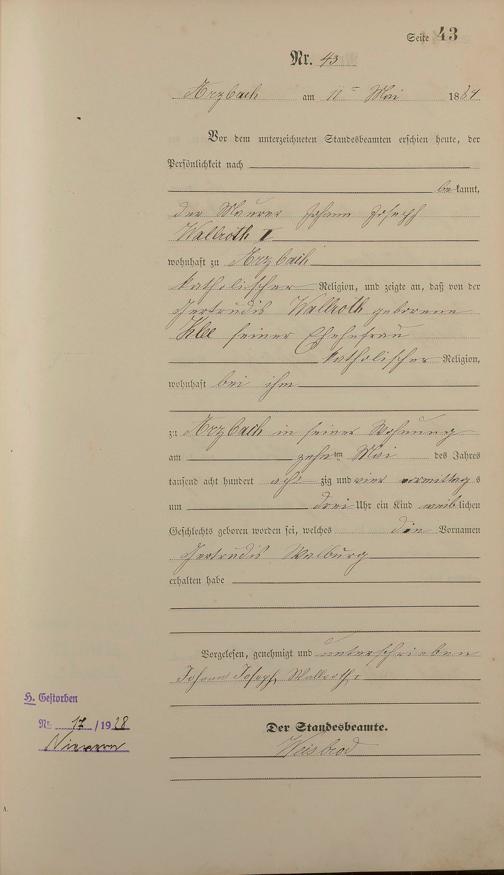 Seite 43
Nr. 43
Arzbach am 11ten Mai 1884
Vor dem unterzeichneten Standesbeamten erschien heute, der
Persönlichkeit nach
be kannt,
der Maurer Johann Joseph
Wallroth I
wohnhaft zu Arzbach
katholischer Religion, und zeigte an, daß von der
Gertrudis Wallroth geborene
Klee seiner Ehefrau
katholischer Religion,
wohnhaft bei ihm
zu Arzbach in seiner Wohnung
am zehnten Mai des Jahres
tausend acht hundert acht zig und vier vormittag s
um drei Uhr ein Kind weib lichen
Geschlechts geboren worden sei, welches die Vornamen
Gertrudis Walburg
erhalten habe
Vorgelesen, genehmigt und unterschrieben
Johann Joseph Wallroth
H. Gestorben
Nr. 17 / 1928
Der Standesbeamte.
Weisbrod
A.